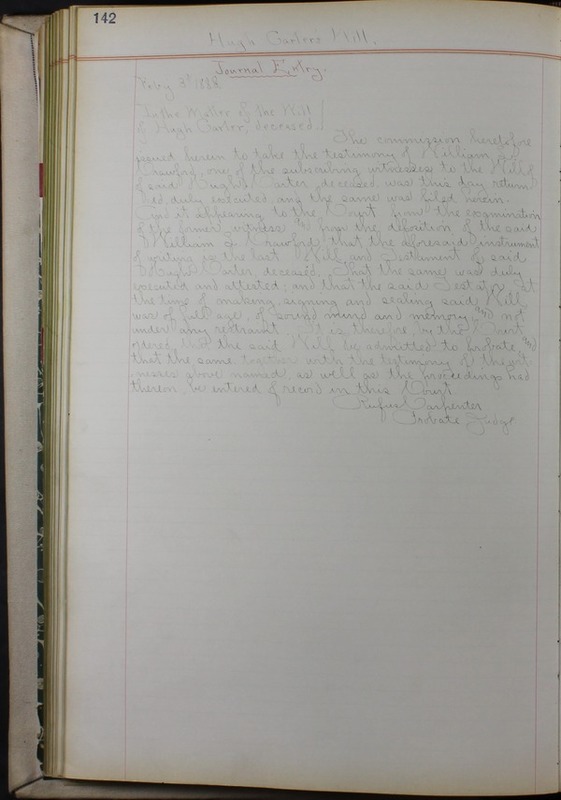 142
Hugh Carter's Will.
Journal Entry.
Feby 3d 1888
In the Matter of the Will
of Hugh Carter, deceased.
The commission heretofore
issued herein to take the testimony of William
Crawford, one of the subscribing witnesses to the Will
of said Hugh Carter, deceased, was this day return
ed duly executed and the same was filed herein.
And it appearing to the Court from the examination
of the former witness and from the deposition of the said
William Crawford that the aforesaid instrument
of writing is the last Will and Testament of said
Hugh Carter, deceased, that the same was duly
executed and attested; and that the said Testator at
the time of making, signing and sealing said Will
was of full age, of sound mind and memory, and not
under any restraint. It is therefore, by the Court
ordered, that the said Will be admitted to probate, and
that the same together with the testimony of the wit
nesses above named as well as the proceedings had
thereon, be entered of record in this Court.
Rufus Carpenter
Probate Judge